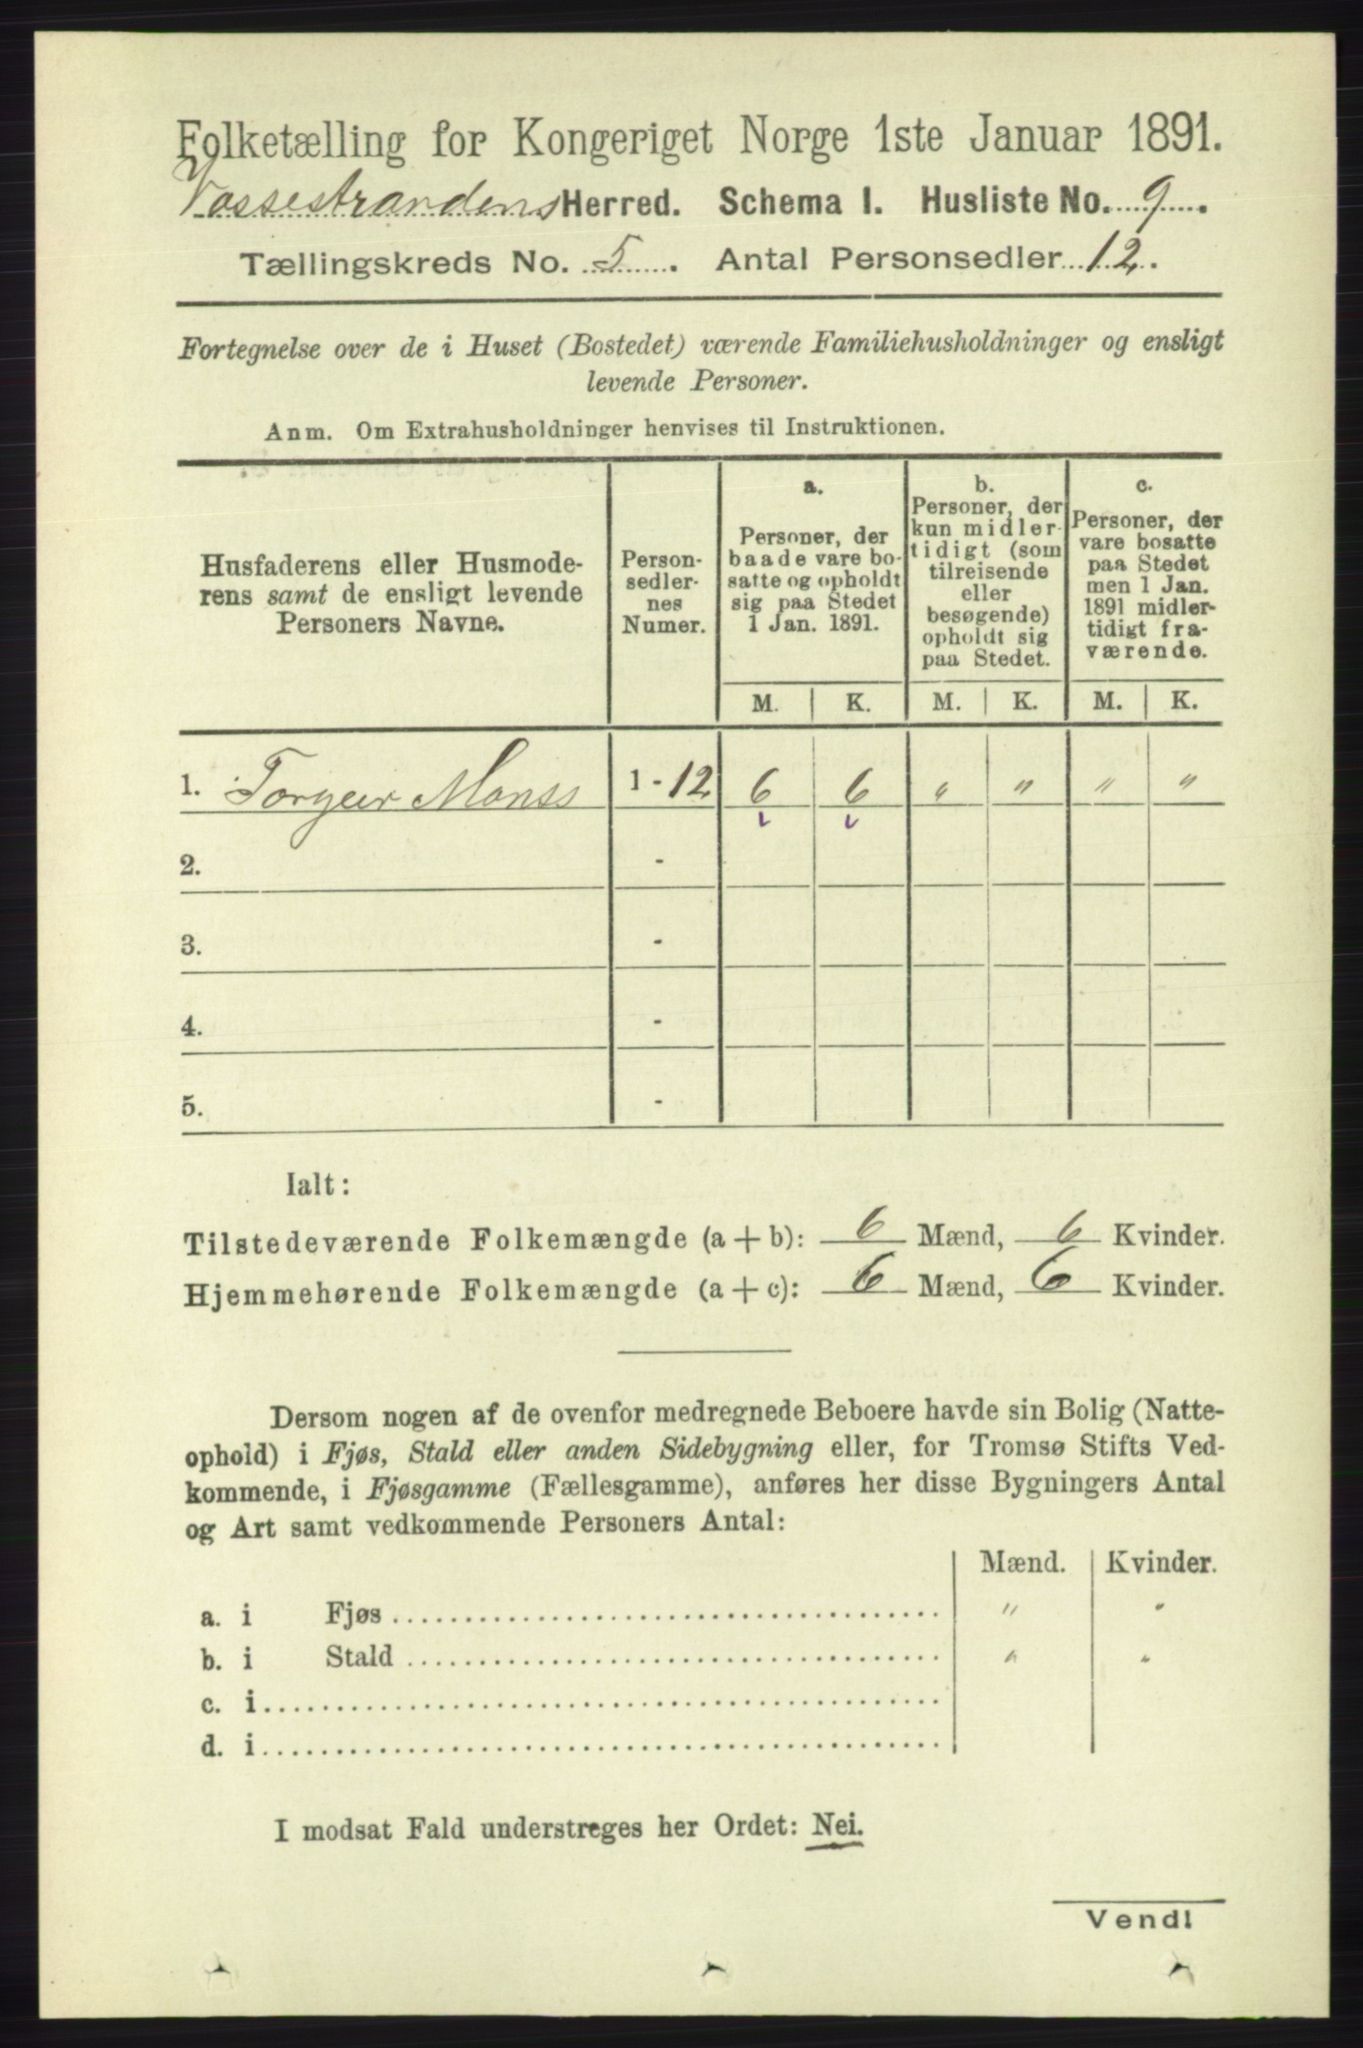 Folketælling for Kongeriget Norge 1ste Januar 1891.
Vossestrandens Herred. Schema I. Husliste No. 9.
Tællingskreds No. 5. Antal Personsedler 12.
Fortegnelse over de i Huset (Bostedet) værende Familiehusholdninger og ensligt
levende Personer.
Anm. Om Extrahusholdninger henvises til Instruktionen.
Husfaderens eller Husmode-
rens samt de ensligt levende
Personers Navne.
Person-
sedler-
nes
Numer.
a.
Personer, der
baade vare bo-
satte og opholdt
sig paa Stedet
1 Jan. 1891.
b.
Personer, der
kun midler-
tidigt (som
tilreisende
eller
besøgende)
opholdt sig
paa Stedet.
c.
Personer, der
vare bosatte
paa Stedet
men 1 Jan.
1891 midler-
tidigt fra-
værende.
M. K. M. K. M. K.
1. Torgeir Monss 1 - 12 6 6 " " " "
2. -
3. -
4. -
5. -
Ialt:
Tilstedeværende Folkemængde (a + b): 6 Mænd, 6 Kvinder.
Hjemmehørende Folkemængde (a + c): 6 Mænd, 6 Kvinder.
Dersom nogen af de ovenfor medregnede Beboere havde sin Bolig (Natte-
ophold) i Fjøs, Stald eller anden Sidebygning eller, for Tromsø Stifts Ved-
kommende, i Fjøsgamme (Fællesgamme), anføres her disse Bygningers Antal
og Art samt vedkommende Personers Antal:
Mænd. Kvinder.
a. i Fjøs " "
b. i Stald " "
c. i
d. i
I modsat Fald understreges her Ordet: Nei.
Vend!